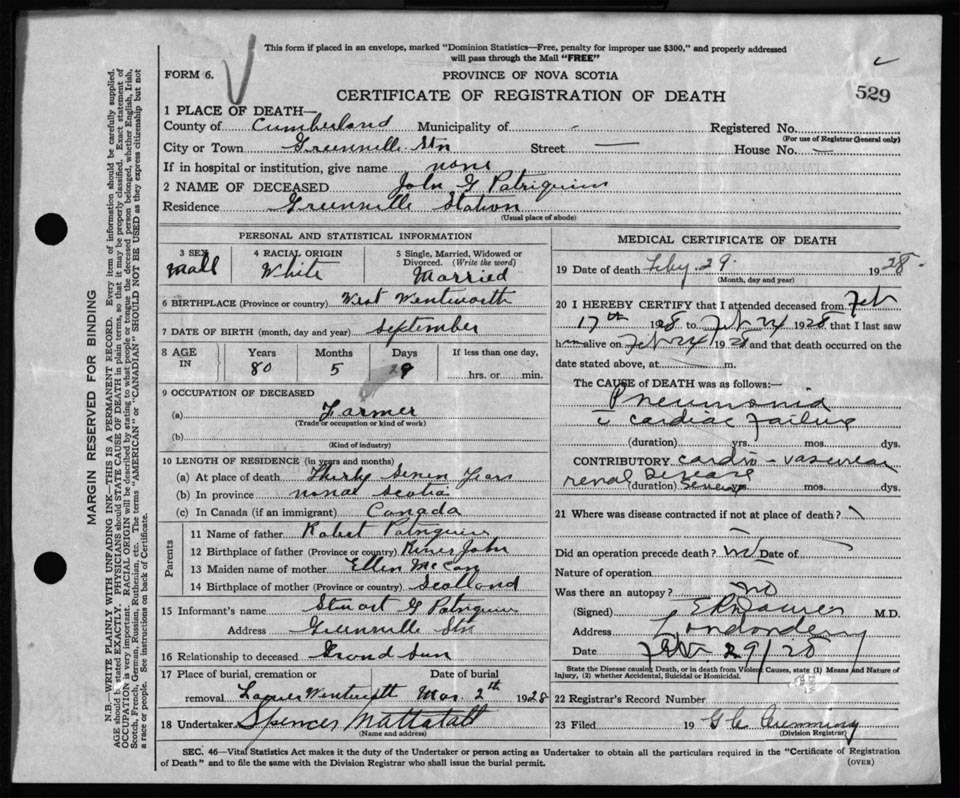 This form if placed in an envelope, marked "Dominion Statistics—Free, penalty for improper use $300," and properly addressed
will pass through the Mail "FREE"
FORM 6.
PROVINCE OF NOVA SCOTIA
CERTIFICATE OF REGISTRATION OF DEATH
529
1 PLACE OF DEATH—
County of Cumberland Municipality of - Registered No.
(For use of Registrar General only)
City or Town Greenville Stn Street — House No. —
If in hospital or institution, give name none
2 NAME OF DECEASED John G Patriquin
Residence Greenville Station
(Usual place of abode)
PERSONAL AND STATISTICAL INFORMATION
3 SEX 4 RACIAL ORIGIN 5 Single, Married, Widowed or
Divorced. (Write the word)
Mall White Married
6 BIRTHPLACE (Province or country) West Wentworth
7 DATE OF BIRTH (month, day and year) September
8 AGE IN Years Months Days If less than one day,
80 5 hrs. or min.
9 OCCUPATION OF DECEASED
(a) Farmer
(Trade or occupation or kind of work)
(b)
(Kind of industry)
10 LENGTH OF RESIDENCE (in years and months)
(a) At place of death Thirty Seven Years
(b) In province Nova Scotia
(c) In Canada (if an immigrant) Canada
Parents
11 Name of father Robert Patriquin
12 Birthplace of father (Province or country) River John
13 Maiden name of mother Ellen
14 Birthplace of mother (Province or country) Scotland
15 Informant's name Stuart G Patriquin
Address Greenville Stn
16 Relationship to deceased Grand Sun
17 Place of burial, cremation or Date of burial
removal Wentworth Mar. 2nd 1928
18 Undertaker Spencer Mattatall
(Name and address)
MEDICAL CERTIFICATE OF DEATH
19 Date of death Feby. 29 1928.
(Month, day and year)
20 I HEREBY CERTIFY that I attended deceased from Feb
17th 1928 to Feb 1928 that I last saw
him alive on Feb 1928 and that death occurred on the
date stated above, at m.
The CAUSE of DEATH was as follows:—
Pneumonia
c cardiac failure
(duration) yrs. mos. dys.
CONTRIBUTORY cardio-vascular
renal Disease
(duration) mos. dys.
21 Where was disease contracted if not at place of death?
Did an operation precede death? no Date of
Nature of operation
Was there an autopsy? no
(Signed) M.D.
Address Londonderry
Date Feb 29/28
State the Disease causing Death, or in death from Violent Causes, state (1) Means and Nature of
Injury, (2) whether Accidental, Suicidal or Homicidal.
22 Registrar's Record Number
23 Filed 19 G C Cumming
(Division Registrar)
SEC. 46—Vital Statistics Act makes it the duty of the Undertaker or person acting as Undertaker to obtain all the particulars required in the "Certificate of Registration
of Death" and to file the same with the Division Registrar who shall issue the burial permit.
(OVER)
MARGIN RESERVED FOR BINDING
N.B.—WRITE PLAINLY WITH UNFADING INK—THIS IS A PERMANENT RECORD. Every item of information should be carefully supplied.
AGE should b. stated EXACTLY. PHYSICIANS should STATE CAUSE OF DEATH in plain terms, so that it may be properly classified. Exact statement of
OCCUPATION is very important. RACIAL ORIGIN will be described by stating to what people or tongue the deceased person belonged, whether English, Irish,
Scotch, French, German, Russian, Ruthenian, etc. The terms "AMERICAN" or "CANADIAN" SHOULD NOT BE USED as they express citizenship but not
a race or people. See instructions on back of Certificate.